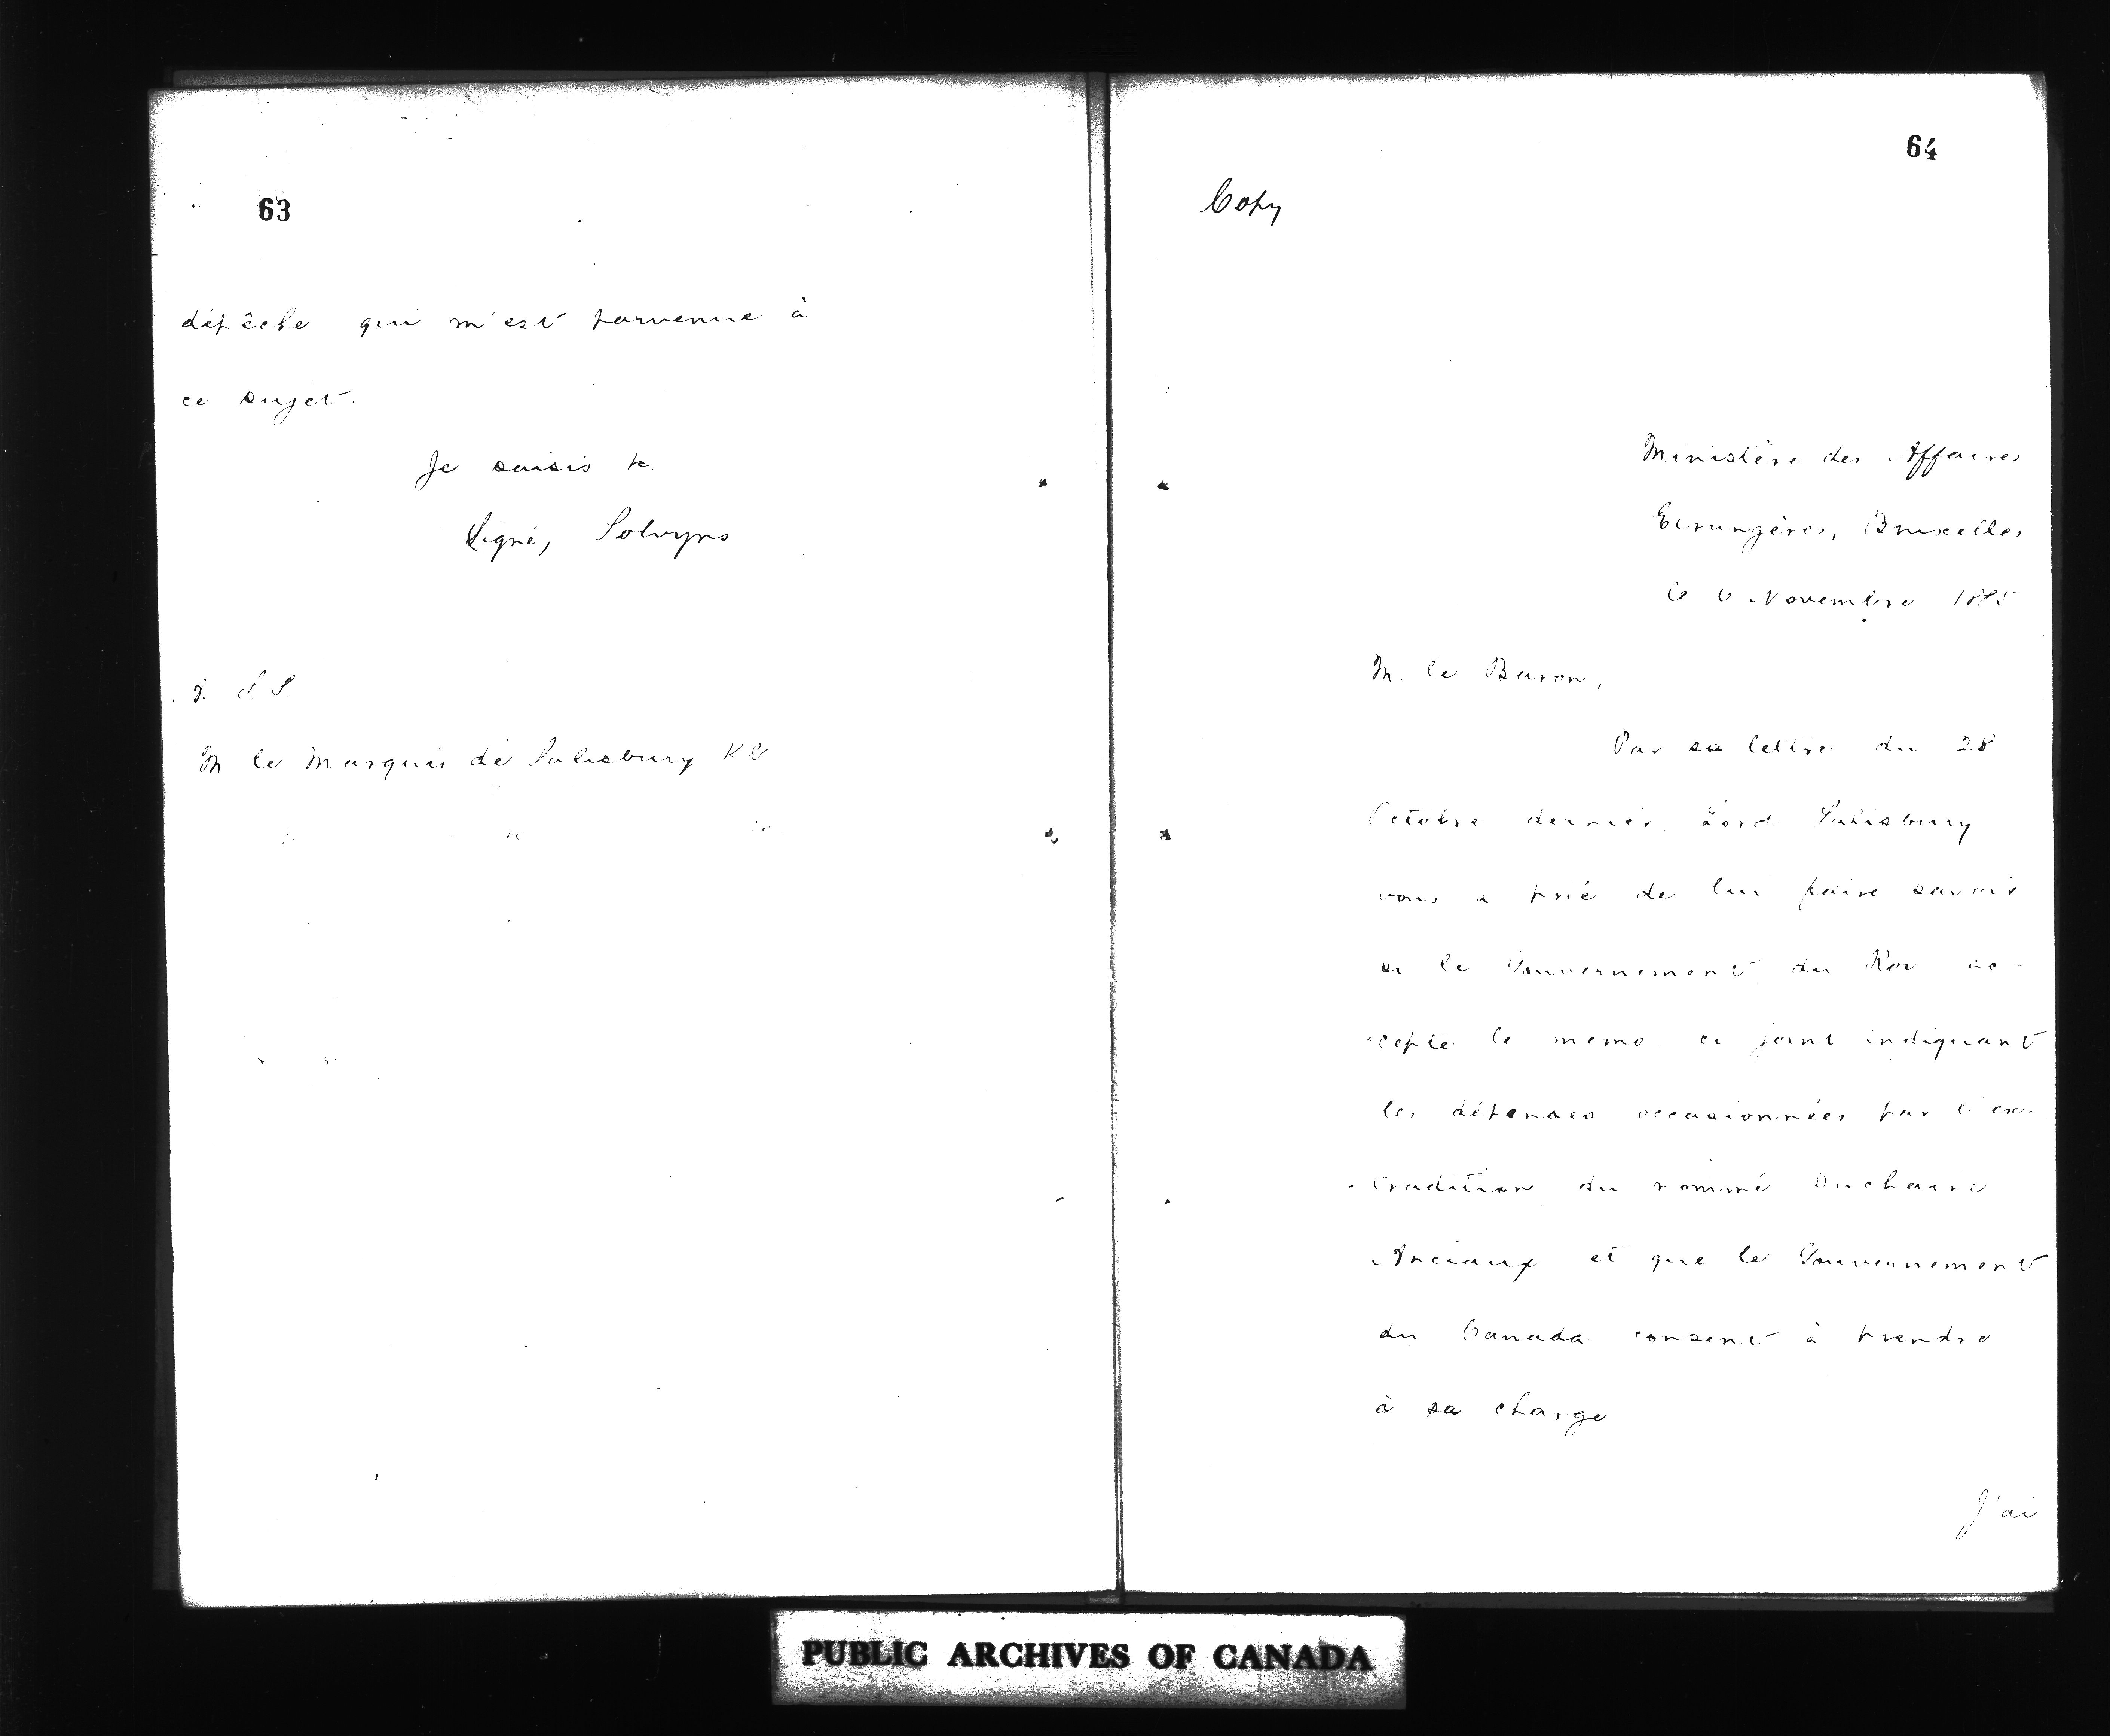 63
dépêche qui m'est parvenue à
ce sujet.
Je saisis &c.
Signé, Solvyns
à S. S.
M le Marquis de Salisbury KG
&c &c &c
64
Copy
Ministère des Affaires
Etrangères, Bruxelles
le 6 Novembre 1885
M. le Baron,
Par sa lettre du 28
Octobre dernier Lord Salisbury
vous a prié de lui faire savoir
si le Gouvernement du Roi ac-
cepte le memo ci joint indiquant
les dépenses occasionnées par l'ex-
tradition du nommé Duchaine
Anciaux et que le Gouvernement
du Canada consent à prendre
à sa charge
J'ai
PUBLIC ARCHIVES OF CANADA